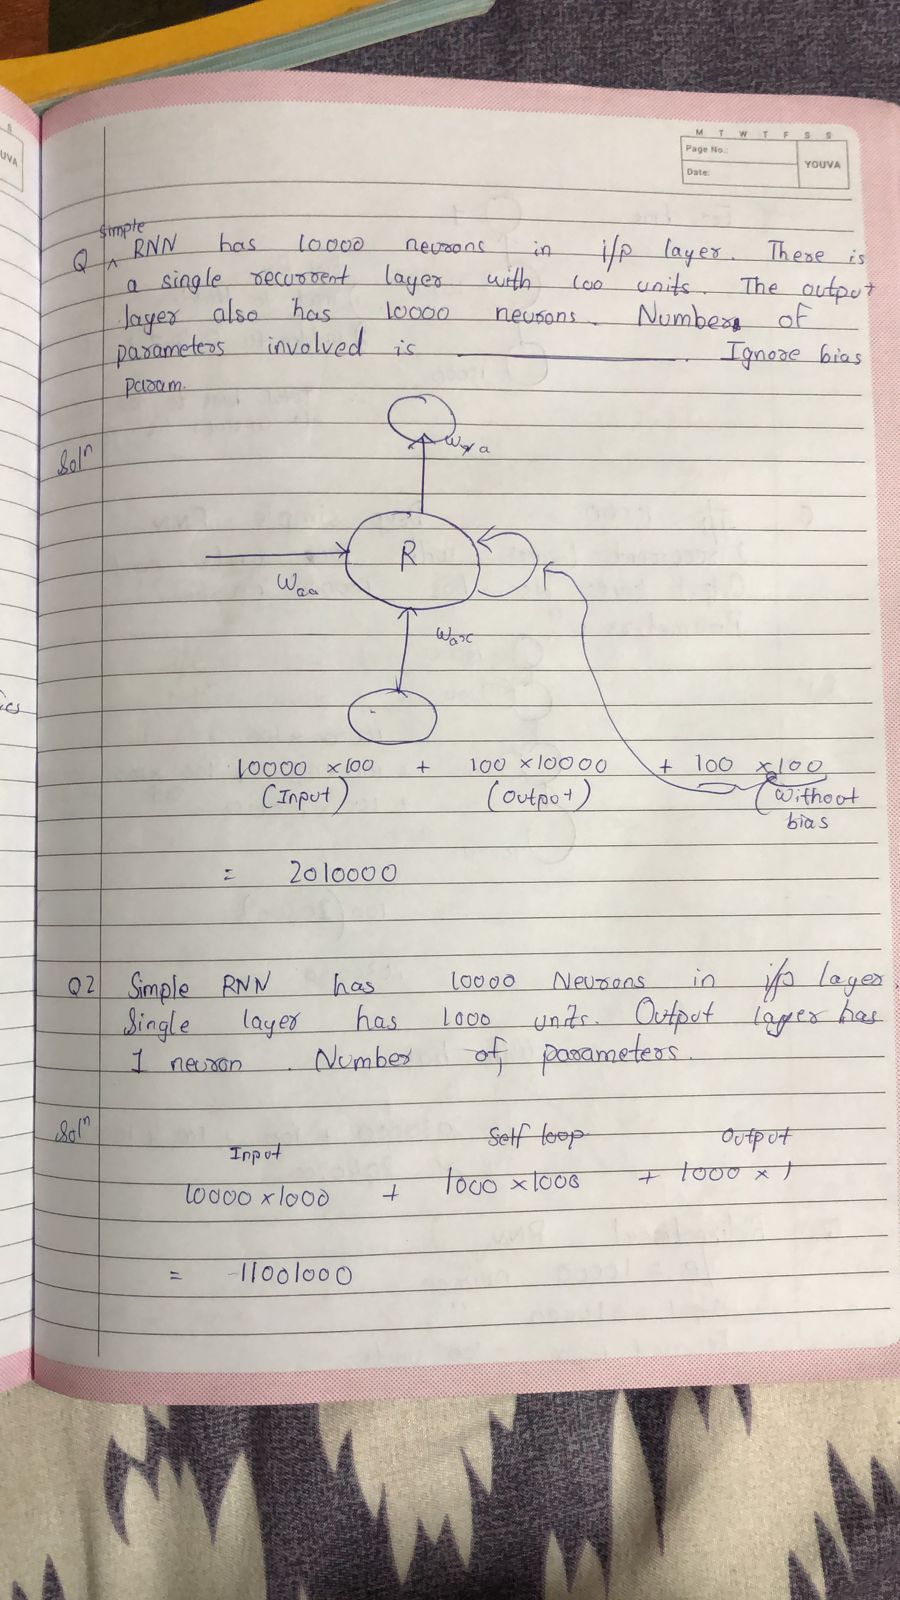 M T W T F S S
Page No.:
Date:
YOUVA
S
UVA
Q Simple RNN has 10000 neurons in i/p layer. There is
a single recurrent layer with 100 units. The output
layer also has 10000 neurons. Number of
parameters involved is ____________. Ignore bias
param.
Solⁿ
Wya
R
Waa
Wax
10000 x100 + 100 x10000 + 100 x100
(Input) (Output) (Without
bias
= 2010000
ics
Q2 Simple RNN has 10000 Neurons in i/p layer
Single layer has 1000 units. Output layer has
1 neuron. Number of parameters.
Solⁿ
Input Self loop Output
10000 x1000 + 1000 x1000 + 1000 x 1
= 11001000